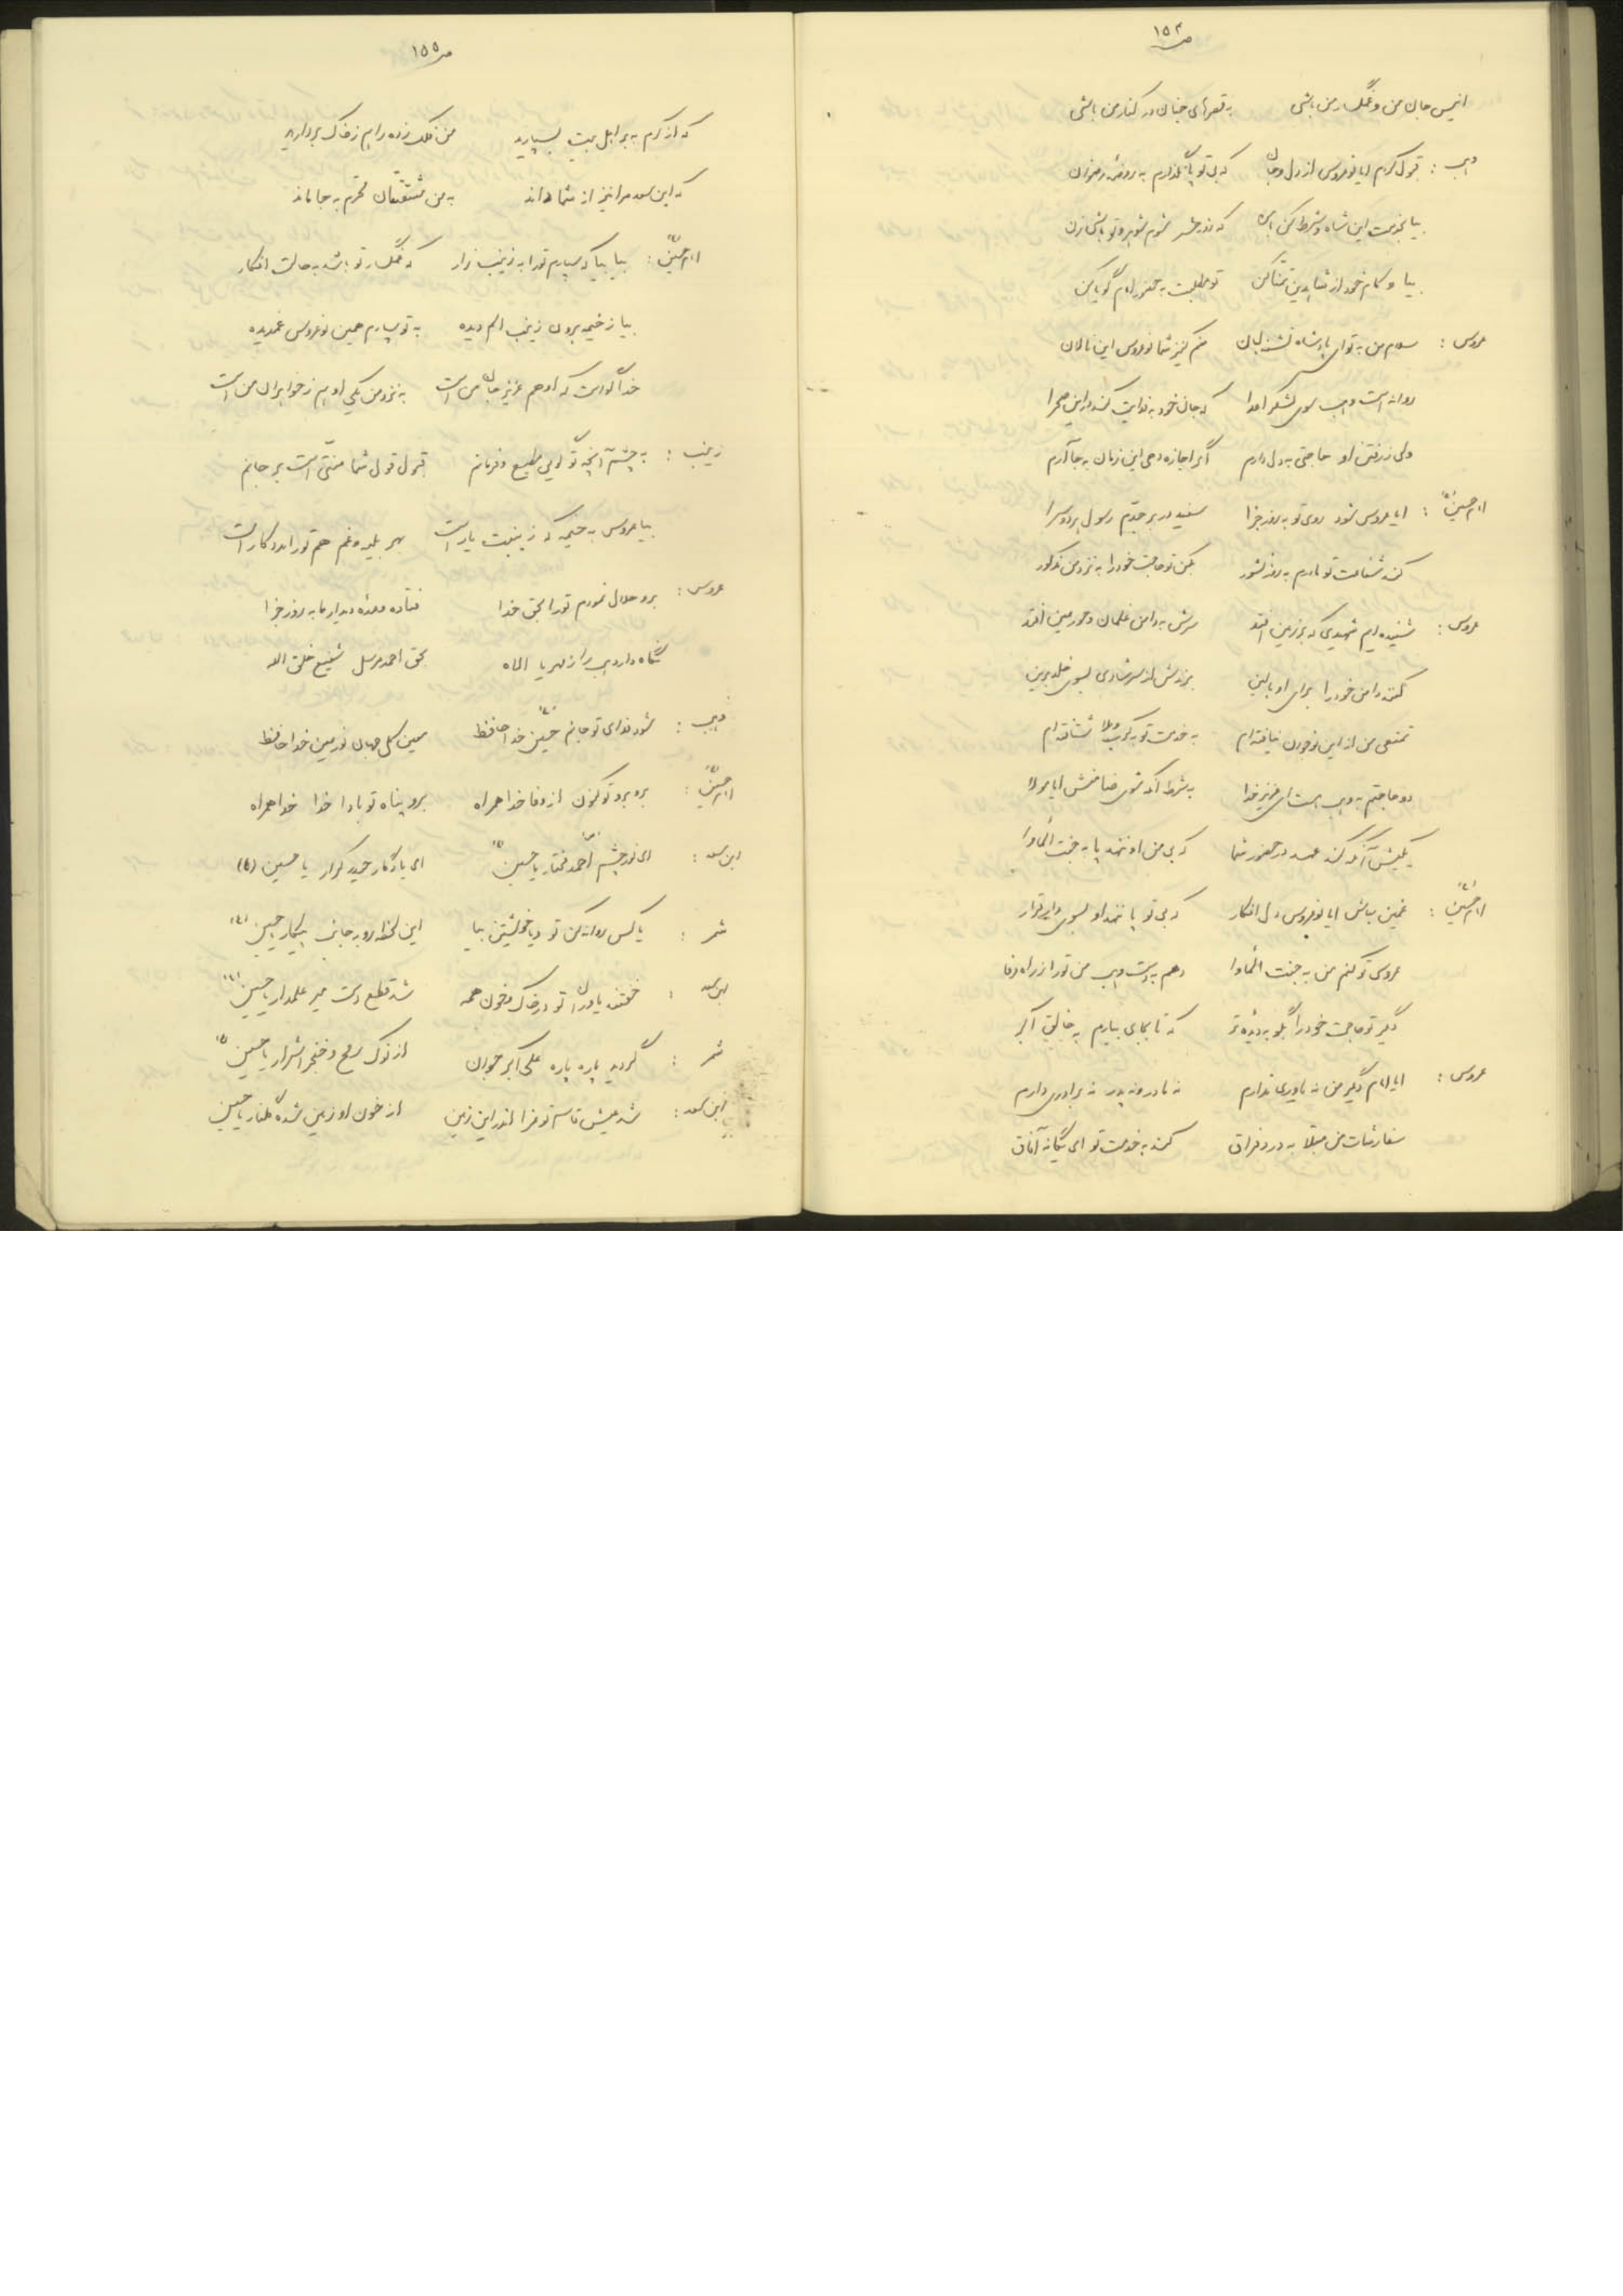 ص ۱۵۴
انیس جان من و غمگسار من باشی به قصرهای جنان در کنار من باشی
وهب : قبول کردم ایا نوعروس از دل و جان که بی تو پا نگذارم به روضه رضوان
بیا بخدمت این شاه و شرط کن با من که روز حشر شوم شوهر و تو باشی زن
بیا و کام خود از شاه دین تمنا کن تو مطلبت به حضور امام گویا کن
عروس : سلام من به تو ای پادشاه تشنه لبان منم کنیز شما نوعروس این نالان
روانه است وهب سوی لشکر اعدا که جان خود به فدایت کند در این صحرا
ولی ز رفتن او حاجتی به دل دارم اگر اجازه دهی این زمان به جا آرم
امام حسین (ع) : ایا عروس شود روی تو به روز جزا سفید در بر جدم رسول هر دو سرا
کند شفاعت تو مادرم به روز نشور بکن تو حاجت خود را به نزد من مذکور
عروس : شنیده ایم شهیدی که بر زمین افتد سرش به دامن غلمان و حور عین افتد
کنند دامن خود را برای او بالین برندش از سر شادی بسوی خلد برین
تمتعی من از این نوجوان نیافته ام به خدمت تو به کرب و بلا شتافته ام
دو حاجتم به وهب هست ای عزیز خدا به شرط آنکه شوی ضامنش ایا مولا
یکیش آنکه کند عهد در حضور شما که بی من او ننهد پا به جنت المأوا
امام حسین (ع) : غمین مباش ایا نوعروس دل افکار که بی تو پا ننهد او بسوی دار قرار
عروسی تو کنم من به جنت المأوا دهم به دست وهب من تو را ز راه وفا
دگر تو حاجت خود را بگو به دیده تر که تا بجای بیارم به خالق اکبر
عروس : ایا امام دگر من نه یاوری دارم نه مادر و نه پدر نه برادری دارم
سفارشات من مبتلا به درد فراق کند به خدمت تو ای یگانه آفاق
ص ۱۵۵
که از کرم به بر اهل بیت بسپارید من فلک زده را هم ز خاک بردارید
که ابن سعد مرا نیز از شما داند به من مشقتان محترم به جا ماند
امام حسین (ع) : بیا بیا که سپارم تو را به زینب زار که غمگسار تو باشد به حالت افکار
بیا ز خیمه برون زینب الم دیده به تو سپارم همین نوعروس غمدیده
خدا گواست که او هم عزیز جان من است به نزد من یکی او هم ز خواهران من است
زینب : به چشم آنچه تو گویی مطیع و فرمانم قبول قول شما منتی است بر جانم
بیا عروس به خیمه که زینبت یار است بهر بلیه و غم هم تو را مددکار است
عروس : برو حلال نمودم تو را بحق خدا فتاده وعده دیدار ما به روز جزا
نگاه دار وهب را ز مهر یا الله بحق احمد مرسل شفیع خلق اله
وهب : شود فدای تو جانم حسین (ع) خدا حافظ معین کل جهان نور عین خدا حافظ
امام حسین (ع) : برو برو تو کنون از وفا خدا همراه برو پناه تو بادا خدا خدا همراه
ابن سعد : ای نور چشم احمد مختار یا حسین (ع) ای یادگار حیدر کرار یا حسین (ع)
شمر : یا کس روانه کن تو و یا خویشتن بیا این لحظه رو به جانب پیکار یا حسین (ع)
ابن سعد : خفتند یاوران تو در خاک و خون همه شد قطع دست میر علمدار یا حسین (ع)
شمر : گردید پاره پاره علی اکبر جوان از نوک رمح و خنجر اشرار یا حسین (ع)
ابن سعد : شد عیش قاسم تو عزا اندر این زمین از خون او زمین شده گلنار یا حسین